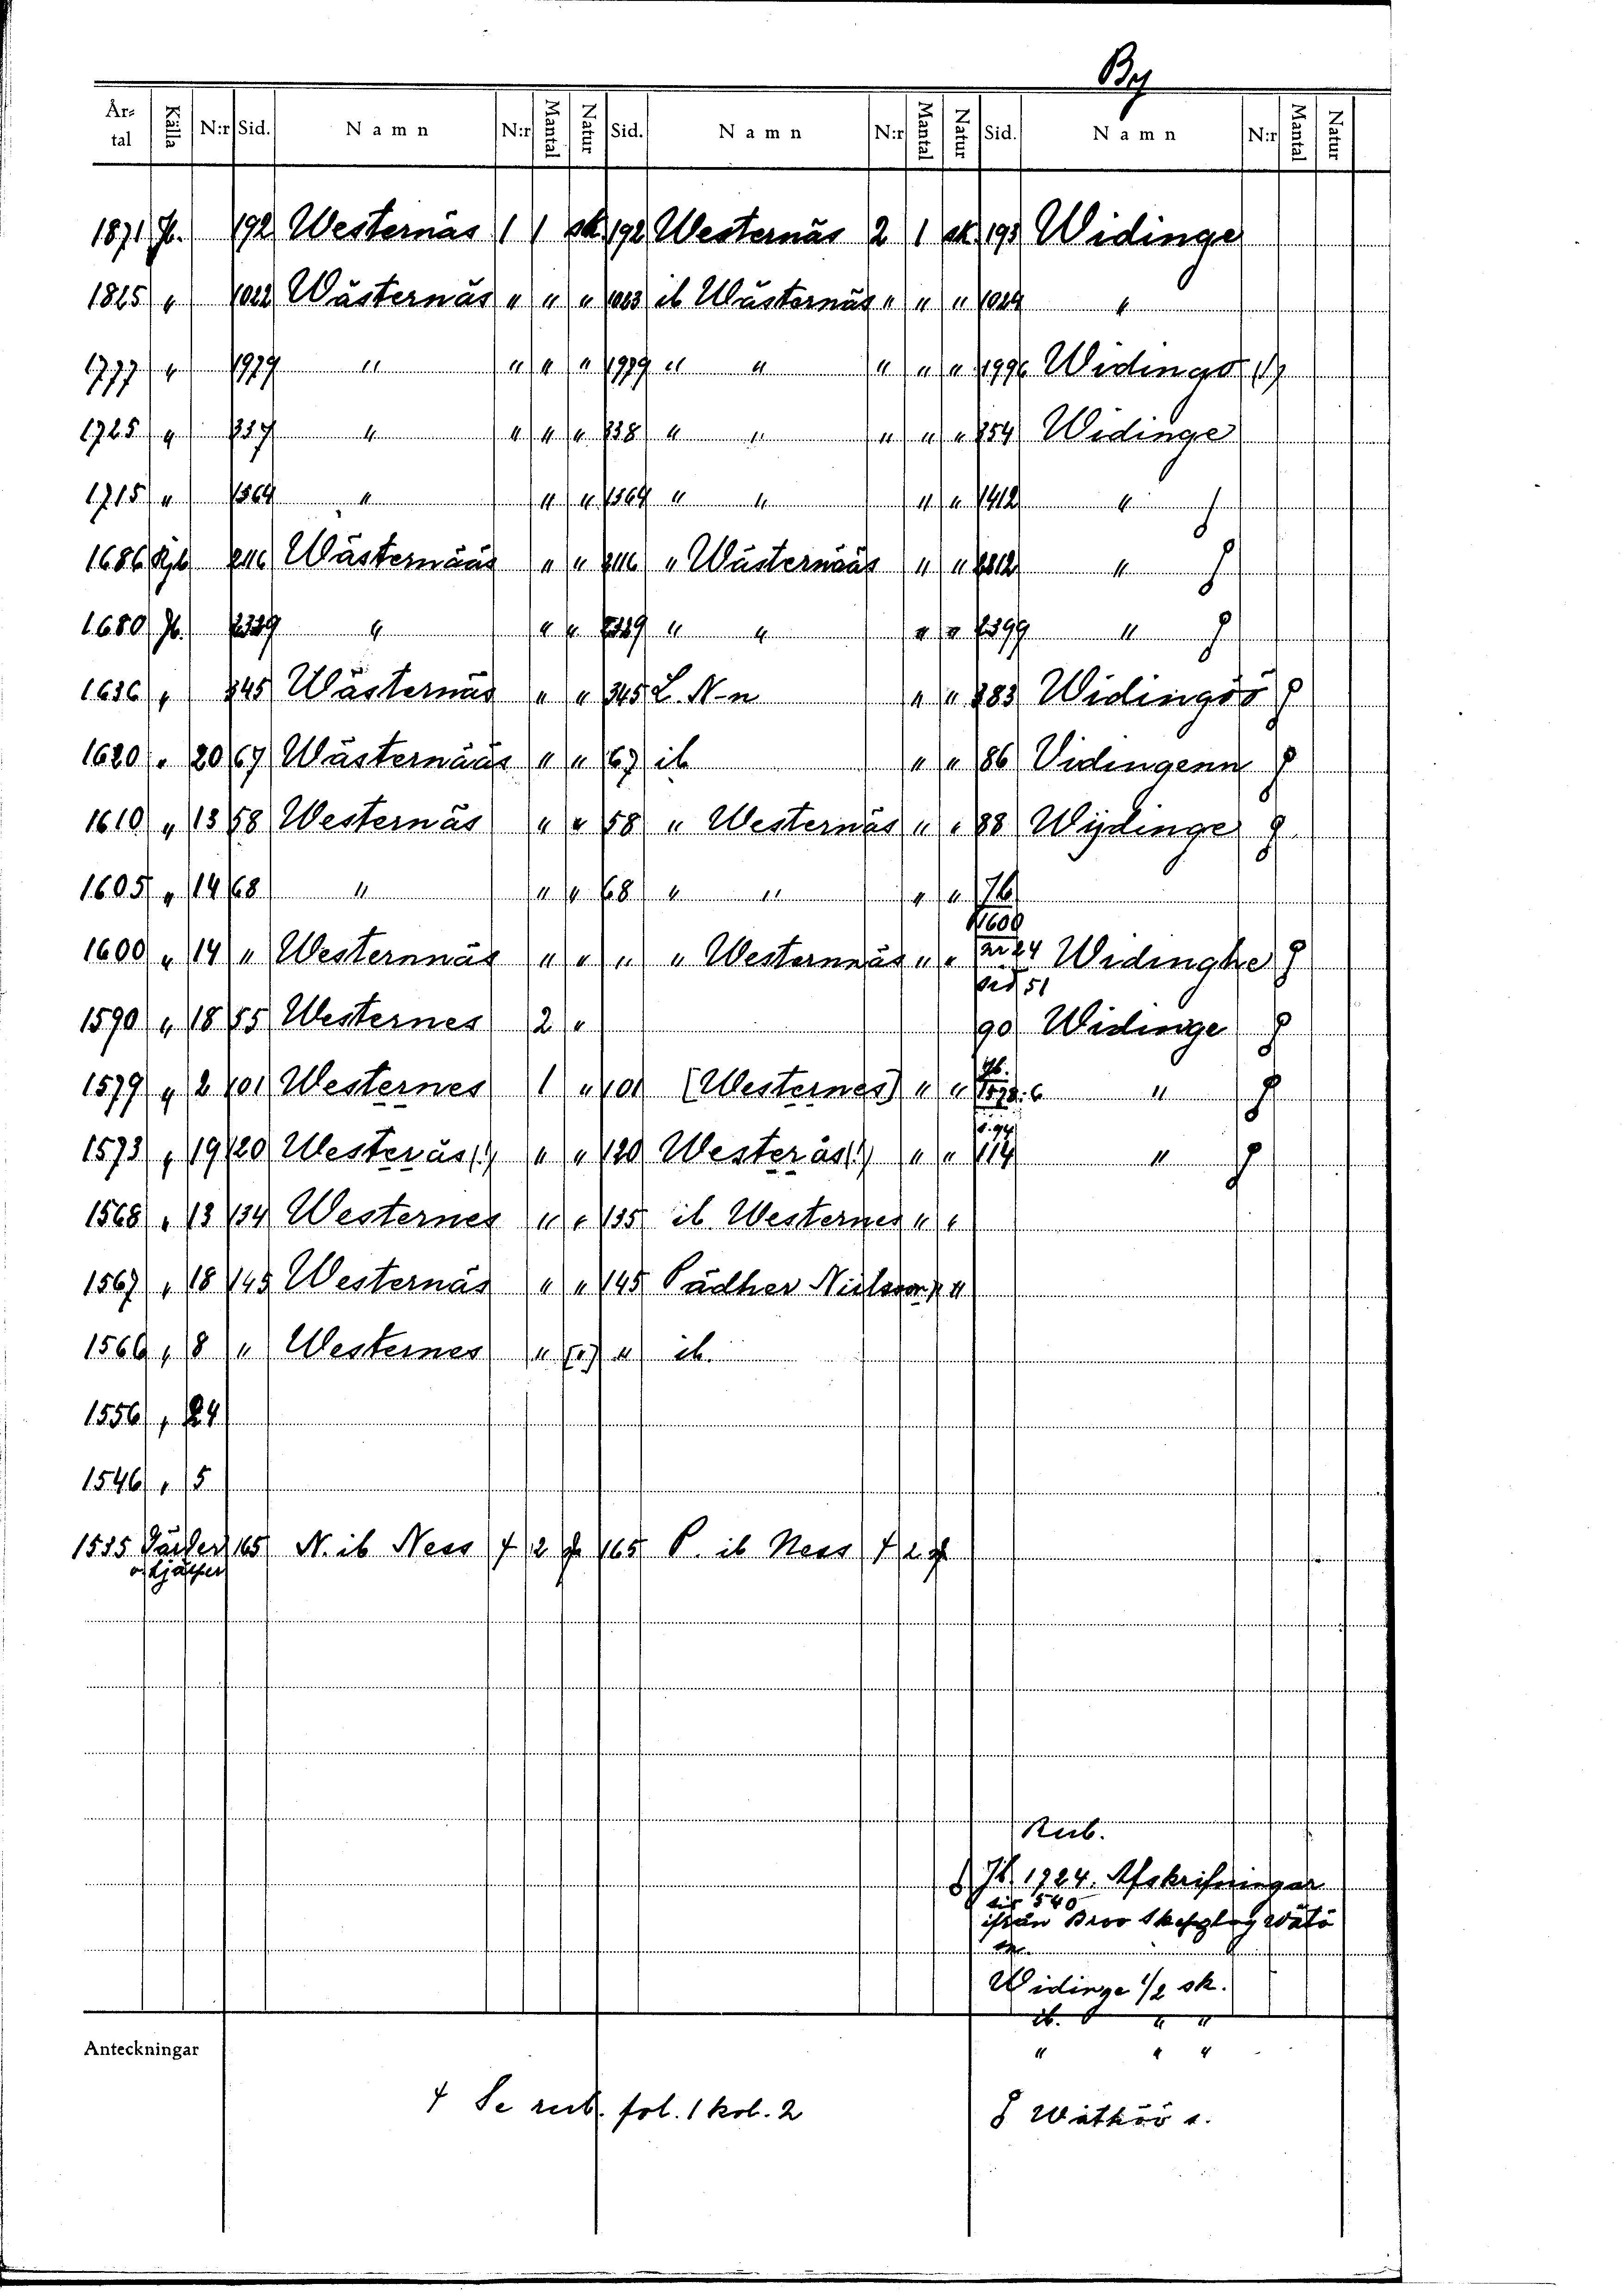 By
År-tal Källa N:r Sid. Namn N:r Mantal Natur Sid. Namn N:r Mantal Natur Sid. Namn N:r Mantal Natur
1871 Jb. 192 Westernäs 1 1 sk 192 Westernäs 2 1 sk 193 Widinge
1825 " 1022 Wästernäs " " " 1023 ib Wästernäs " " " 1024 "
1777 " 1979 " " " " 1979 " " " " " 1996 Widinge (!)
1725 " 837 " " " " 838 " " " " " 854 Widinge
1715 " 1564 " " " 1564 " " " " 1412 "
1686 2116 Wästernääs " " 2116 " Wästernääs " " "
1680 Jb. " " " " " " " 2399 "
1636 " 345 Wästernäs " " 345 L. N-n " " 383 Widingöö
1620 " 20 67 Wästernääs " " 67 ib " " 86 Vidingenn
1610 " 13 58 Westernäs " " 58 " Westernäs " " 88 Wijdinge
1605 " 14 68 " " " 68 " " " " 76
1600 " 14 " Westernnäs " " " " Westernnäs " " 1600 nr 24 sid 51 Widinghe
1590 " 18 55 Westernes 2 " 90 Widinge
1579 " 2 101 Westernes 1 " 101 (Westernes) " " Jb. 1578:6 s. 94 "
1573 " 19 120 Westeräs(!) " " 120 Westeräs(!) " " 114 "
1568 " 13 134 Westernes " " 135 ib Westernes " "
1567 " 18 145 Westernäs " " 145 Pädher Nielsson " "
1566 " 8 " Westernes " (") " ib.
1556 " 24
1546 " 5
1535 165 N. ib Ness 2 165 P. ib Ness 2
Rub.
Jb 1724. Afskrifningar
sid 540
ifrån Broo Skepzlag Wätö
Widinge 1/2 sk.
ib. " "
" " "
Anteckningar
Se rub. fol. 1 kol. 2
Wäthöö s.